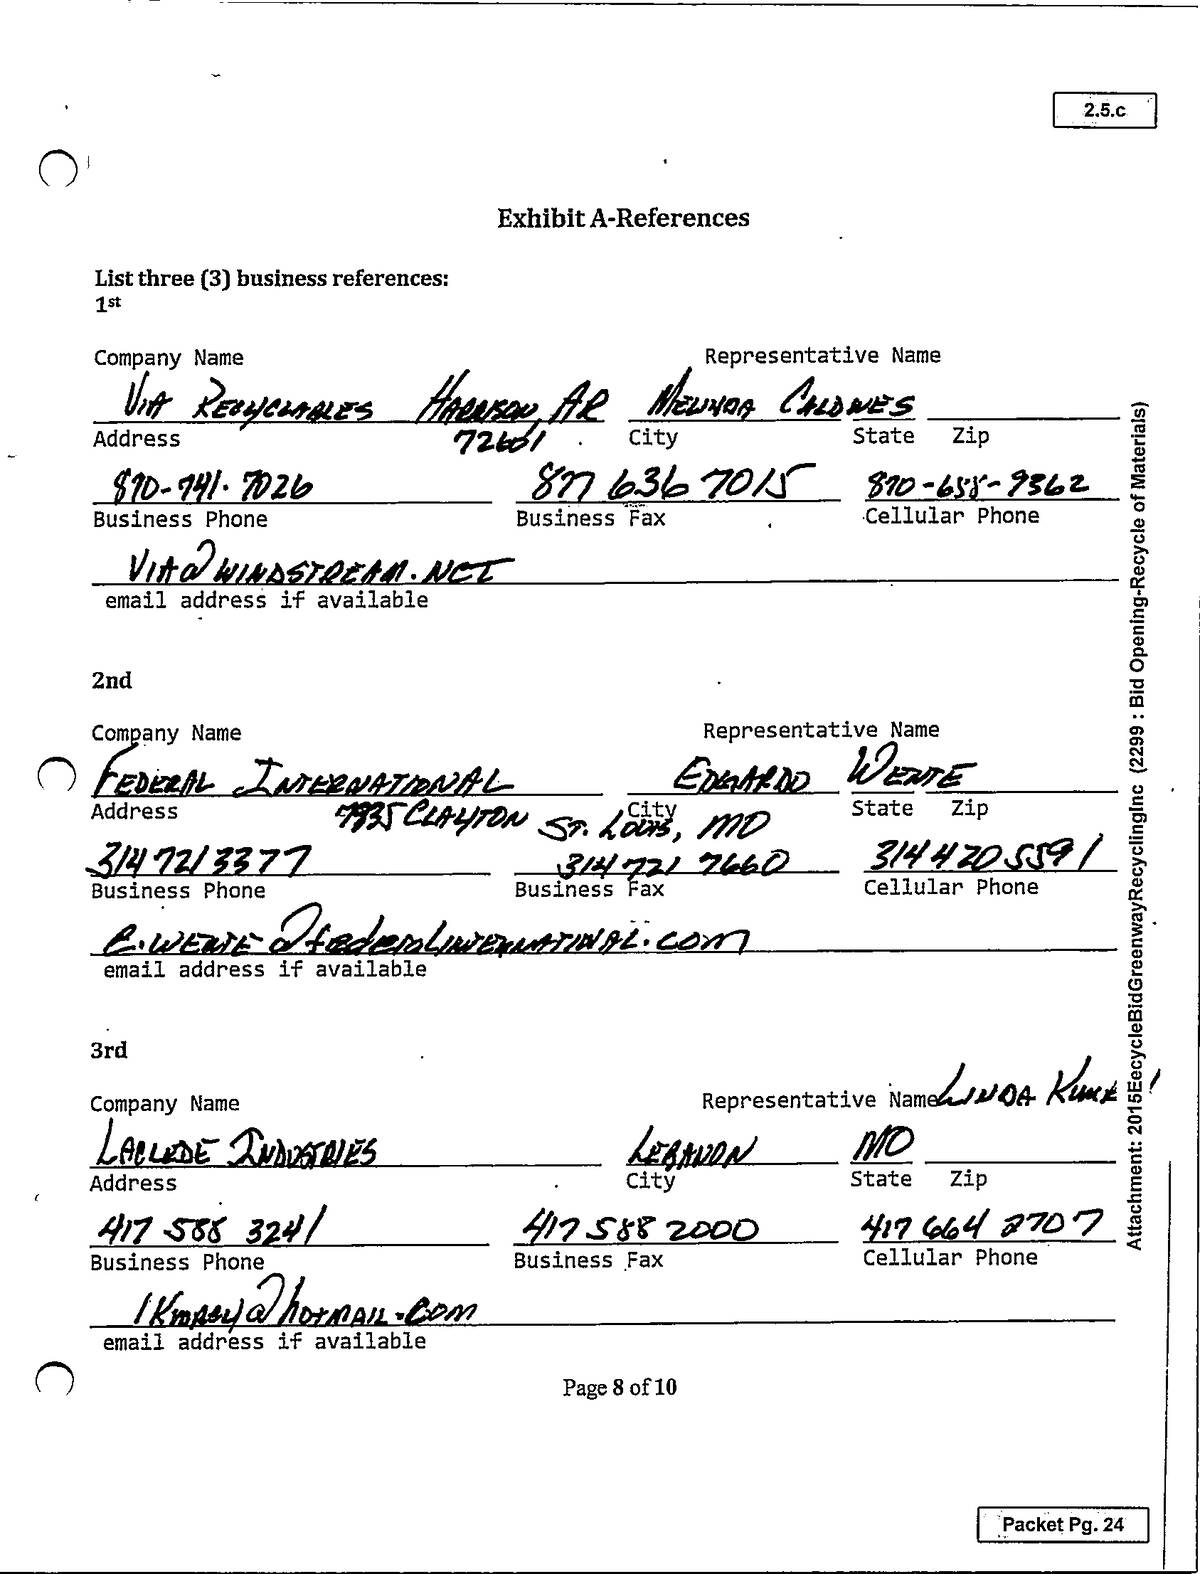 2.5.c
Exhibit A-References
List three (3) business references:
1st
Company Name Representative Name
VIA RECYCLABLES HARRISON, AR MELINDA
Address 72601 City State Zip
870-741-7026 877 636 7015 870-658-9362
Business Phone Business Fax Cellular Phone
VIA@WINDSTREAM.NET
email address if available
2nd
Company Name Representative Name
FEDERAL INTERNATIONAL EDGARDO WENTE
Address City State Zip
7935 CLAYTON ST. LOUIS, MO
314 721 3377 314 721 7660 314 420 5591
Business Phone Business Fax Cellular Phone
e.WENTE@federalINTERNATIONAL.com
email address if available
3rd
Company Name Representative Name LINDA
LACLEDE INDUSTRIES LEBANON MO
Address City State Zip
417 588 3241 417 588 2000 417 664 2707
Business Phone Business Fax Cellular Phone
email address if available
Page 8 of 10
Packet Pg. 24
Attachment: 2015EecycleBidGreenwayRecyclingInc (2299 : Bid Opening-Recycle of Materials)